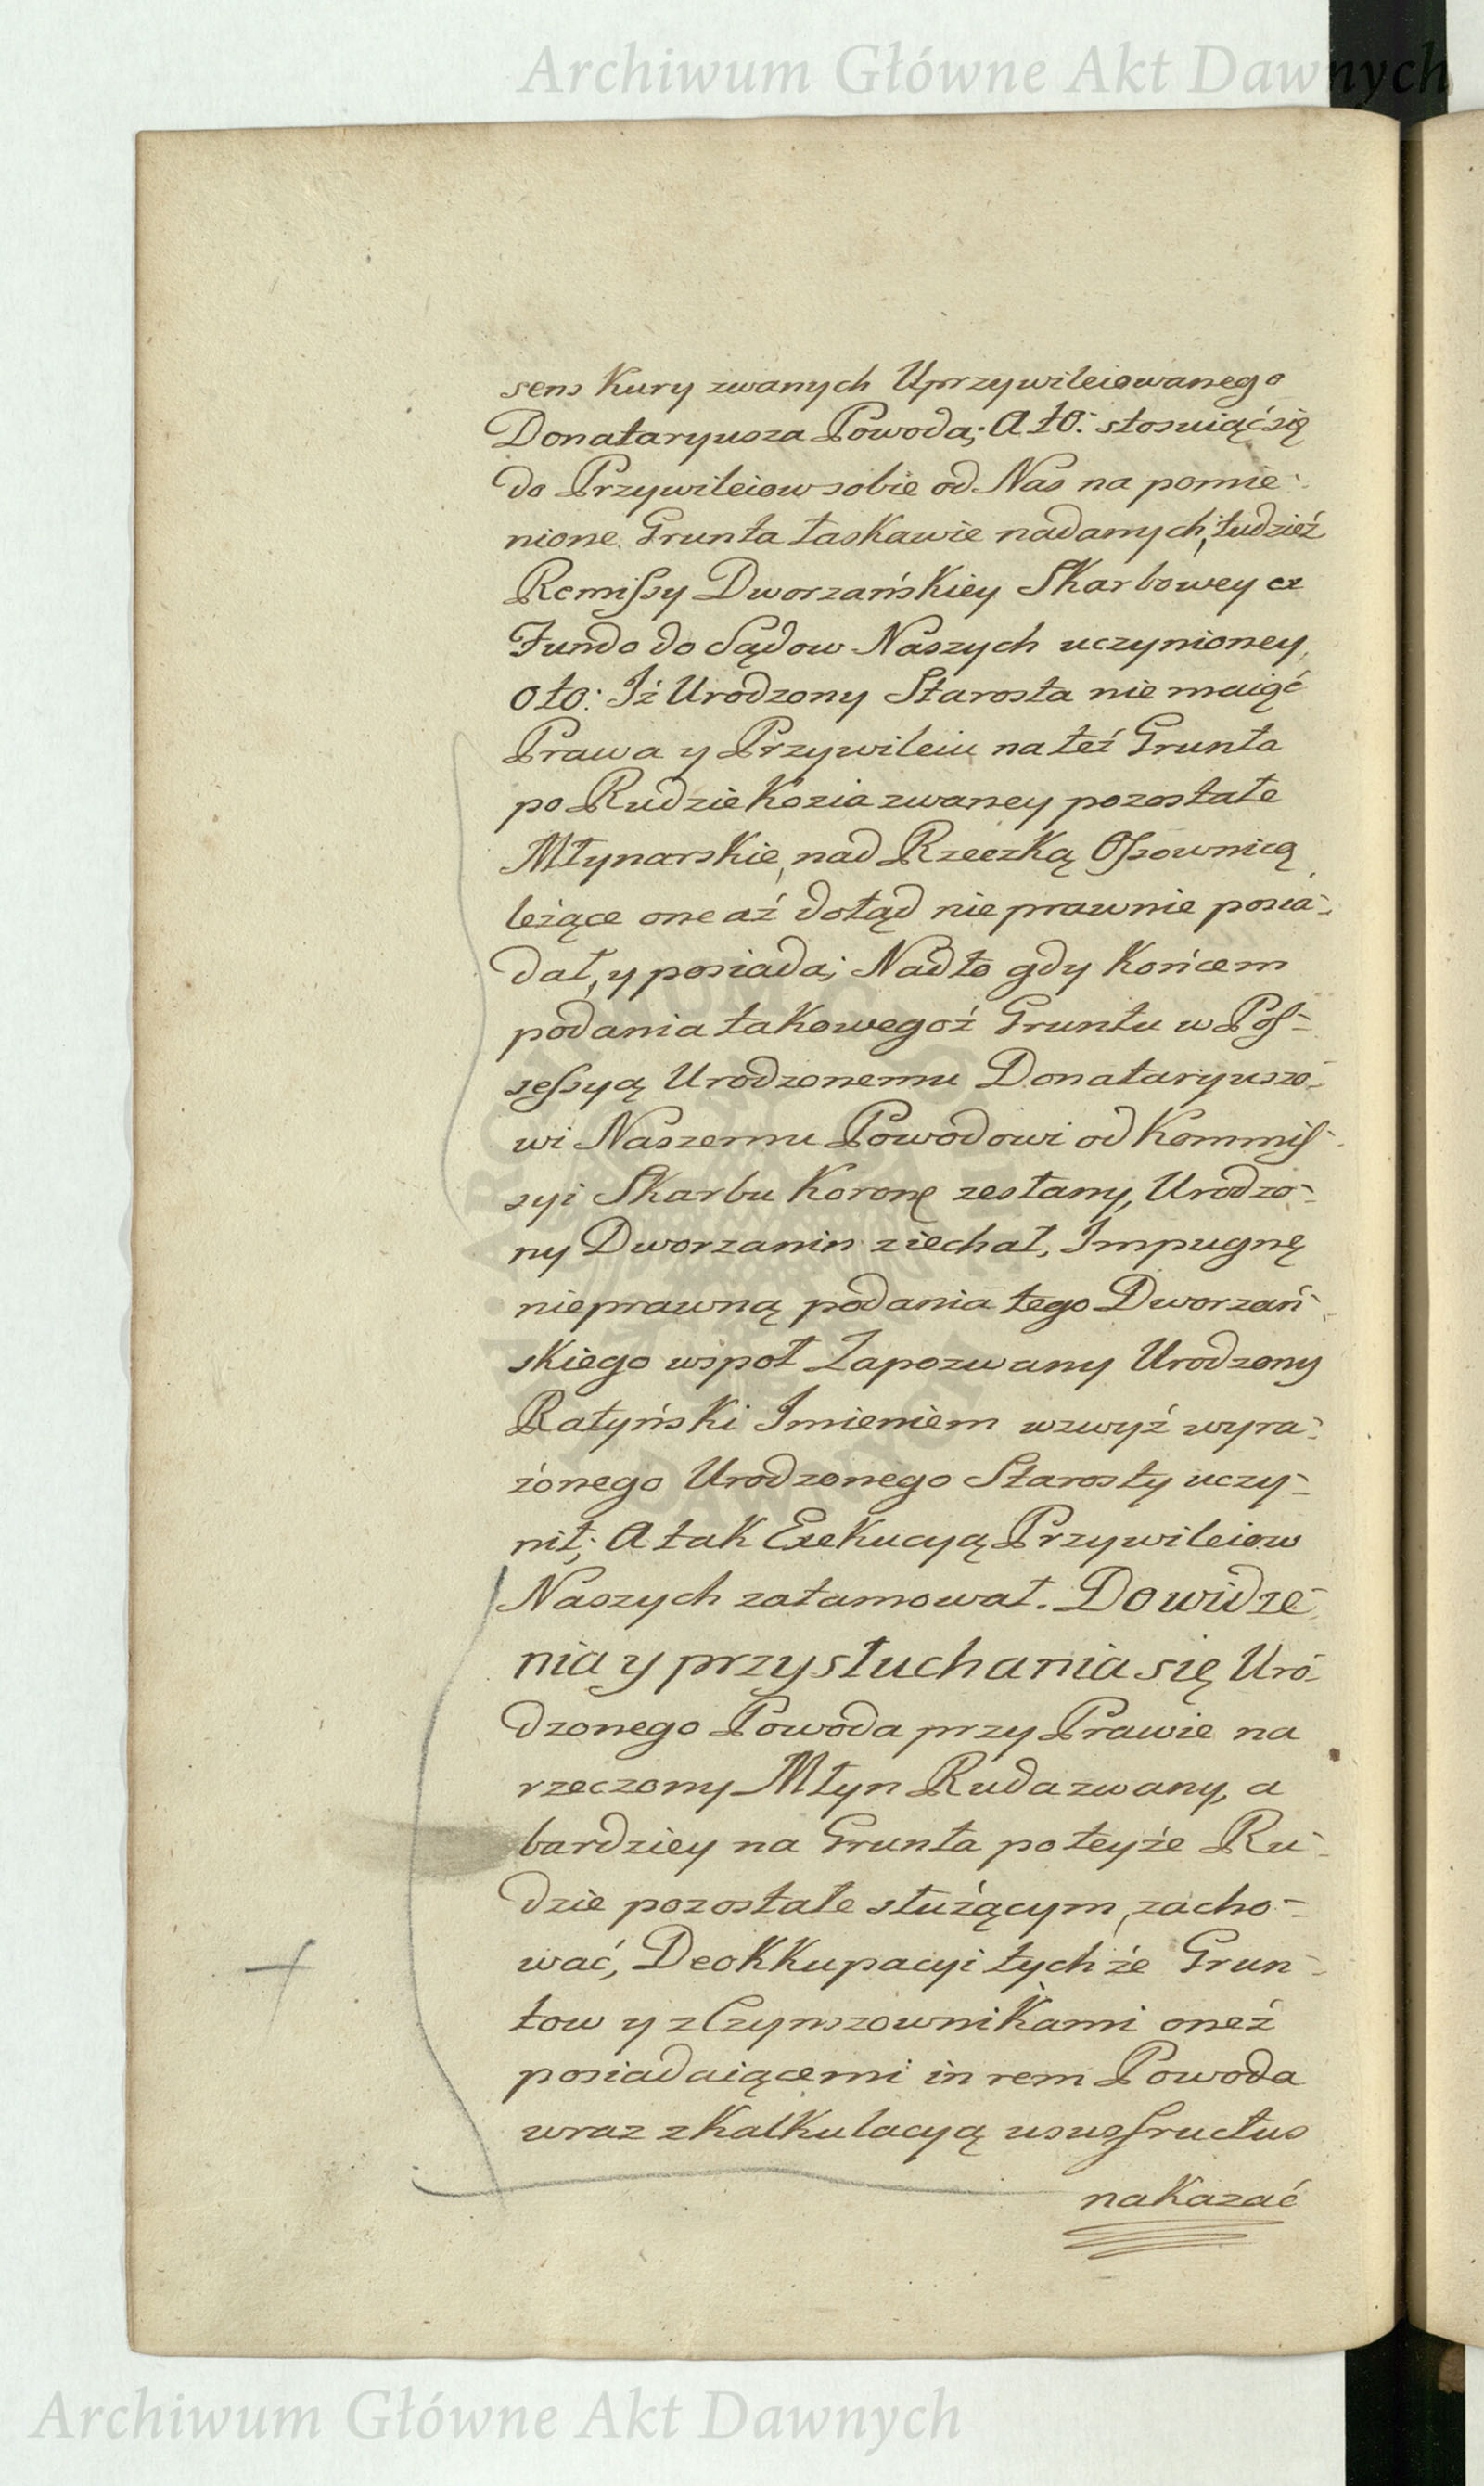 Archiwum Główne Akt Dawnych
sens Kury zwanych Uprzywileiowanego
Donataryusza Powoda; A to: stosuiąć się
do Przywileiow sobie od Nas na pomie-
nione Grunta łaskawie nadanych, tudzież
Remissy Dworzańskiey Skarbowey ex
Fundo do Sądow Naszych uczynioney,
oto: Iż Urodzony Starosta nie maiąć
Prawa y Przywileiu na też Grunta
po Rudzie Kozia zwaney pozostałe
Młynarskie, nad Rzeczką Ossownicą
leżące one aż dotąd nieprawnie posia-
dał, y posiada; Nadto gdy Końcem
podania takowegoż Gruntu w Pos-
sessyą Urodzonemu Donataryuszo-
wi Naszemu Powodowi od Kommis-
syi Skarbu Koronę zesłany, Urodzo-
ny Dworzanin ziechał, Impugnę
nieprawną podania tego Dworzań-
skiego wspoł Zapozwany Urodzony
Ratyński Imieniem wzwyż wyra-
żonego Urodzonego Starosty uczy-
nił; A tak Exekucyą Przywileiow
Naszych zatamował. Do widze-
nia y przysłuchania się Uro-
dzonego Powoda przy Prawie na
rzeczony Młyn Ruda zwany, a
bardziey na Grunta po teyże Ru-
dzie pozostałe służącym, zacho-
wać, Deokkupacyi tychże Grun-
tow y z Czynszownikami oneż
posiadaiącemi in rem Powoda
wraz z Kalkulacyą ususfructus
nakazać
Archiwum Główne Akt Dawnych